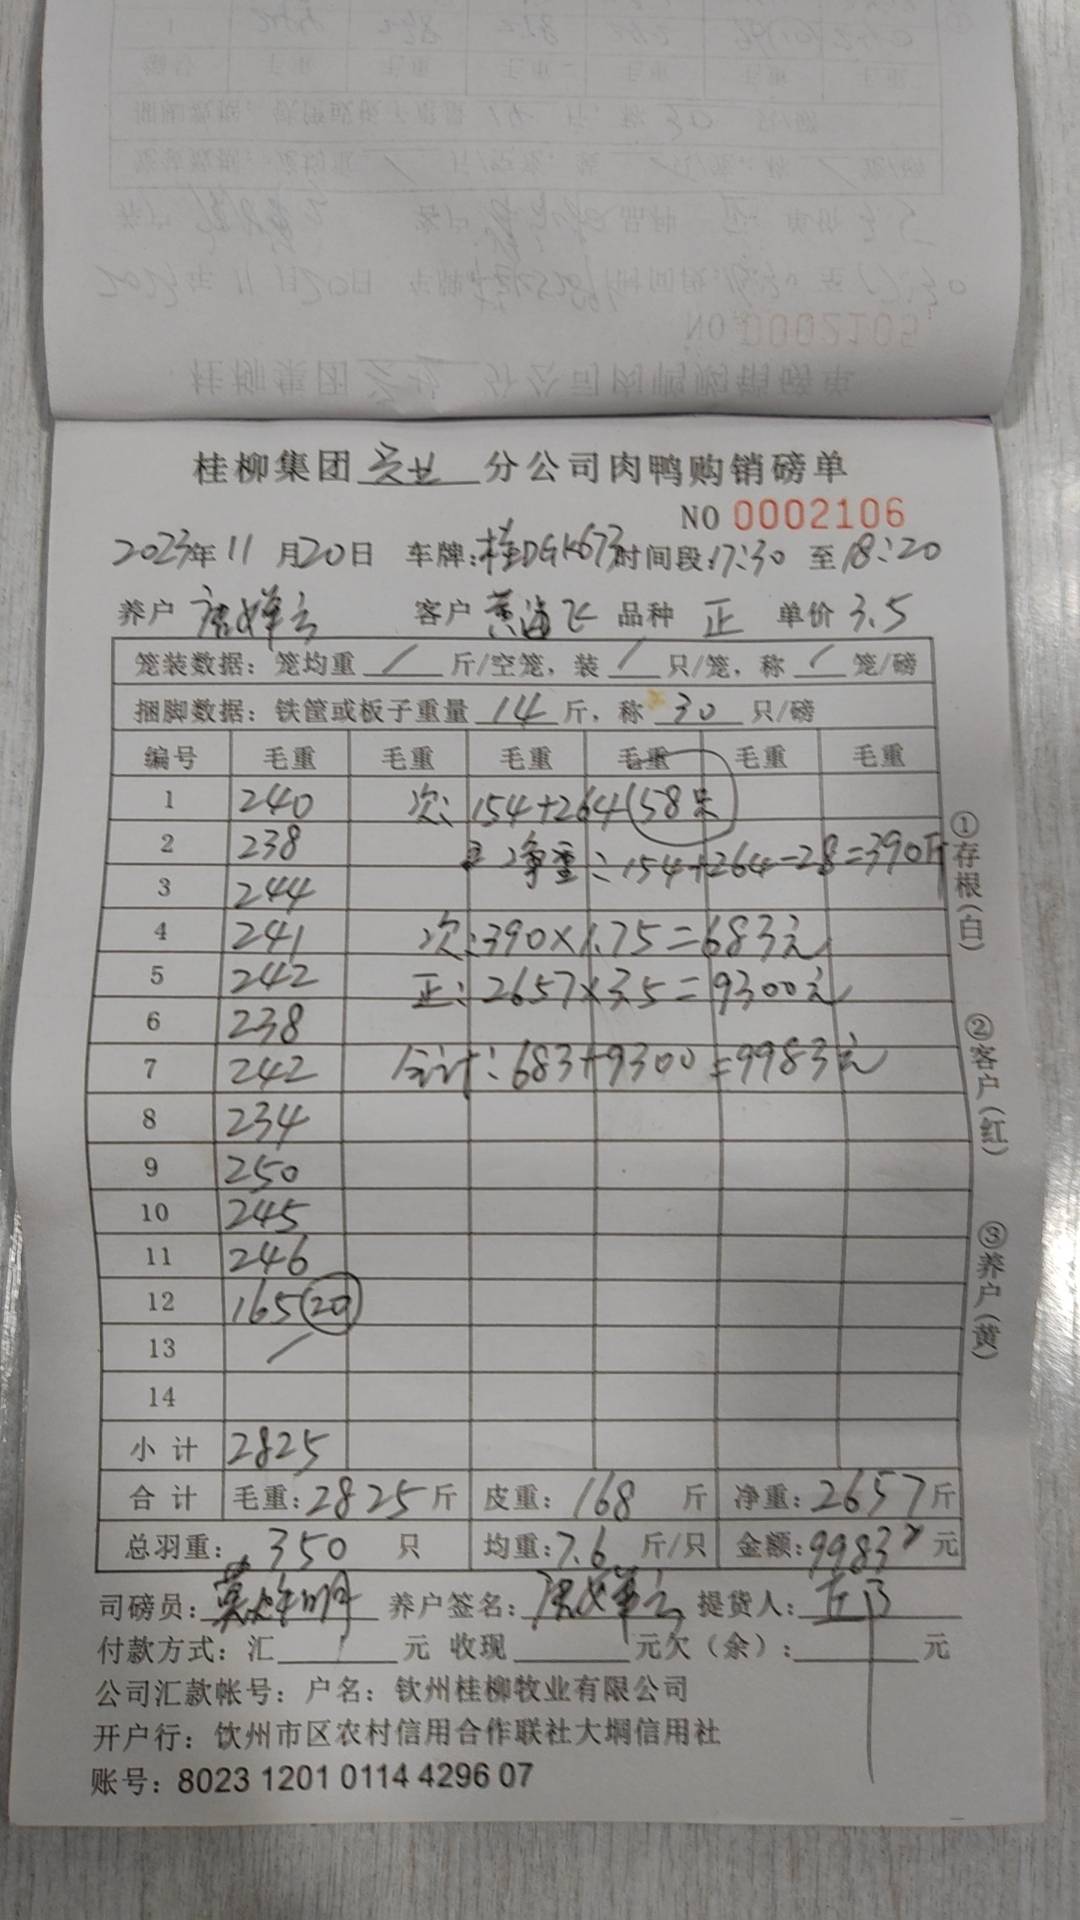 桂柳集团 灵业 分公司肉鸭购销磅单
NO 0002106
2023年 11 月20日 车牌:桂DGK673 时间段:17:30 至 18:20
养户 唐婵云 客户 黄海飞 品种 正 单价 3.5
笼装数据：笼均重 / 斤/空笼，装 / 只/笼，称 / 笼/磅
捆脚数据：铁筐或板子重量 14 斤，称 30 只/磅
编号 毛重 毛重 毛重 毛重 毛重 毛重
1 240 次: 154+264 (58只)
2 238 净重: 154+264-28=390斤
3 244
4 241 次:390×1.75=683元
5 242 正: 2657×3.5=9300元
6 238
7 242 合计: 683+9300=9983元
8 234
9 250
10 245
11 246
12 165 (20)
13 /
14
小 计 2825
合 计 毛重: 2825 斤 皮重: 168 斤 净重: 2657 斤
总羽重: 350 只 均重: 7.6 斤/只 金额: 9983 元
司磅员: 养户签名: 唐婵云 提货人:
付款方式: 汇 元 收现 元欠（余）: 元
公司汇款帐号: 户名: 钦州桂柳牧业有限公司
开户行: 饮州市区农村信用合作联社大垌信用社
账号: 8023 1201 0114 4296 07
①存根(白)
②客户(红)
③养户(黄)